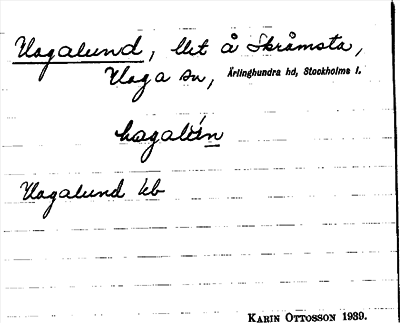 Hagalund, lht å Skråmsta,
Haga sn, Ärlinghundra hd, Stockholms l.
Hagalund kb
KARIN OTTOSSON 1939.